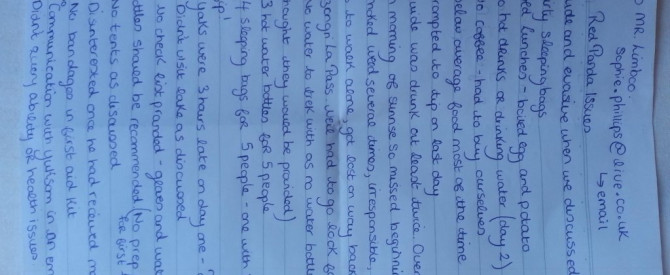 o MR Limboo
Sophie.philips@live.co.uk
↳ email
Red Panda Issues
ude and evasive when we discussed
irty sleeping bags
ed lunches - boiled egg and potato
o hot drinks or drinking water (day 2)
o coffee - had to buy ourselves
below average food most of the time
rompted to tip on last day
uide was drunk at least twice. Over
n morning of sunrise so missed beginnin
noked weed several times, irresponsible,
to walk alone, got lost on way back
ongri La Pass, we had to go look fo
ve water to trek with as no water bottl
hought they would be provided)
3 hot water bottles for 5 people
4 sleeping bags for 5 people - one with
yaks were 3 hours late on day one -
Didnt visit lake as discussed
No check list provided - gloves and wat
ottles should be recommended (No prep
for first
No tents as discussed
Disinterested once he had received m
No bandages in first aid kit
Communication with Yuksom in an em
Didnt query ability or health issues